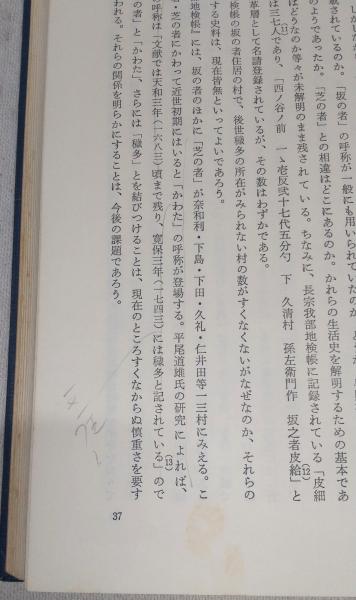 「坂の者」の呼称が一般にも用いられていたのか
のようであったか。「芝の者」との相違はどこにあるのか。かれらの生活史を解明するための基本であ
はどうなのか等々が未解明のまま残されている。ちなみに、長宗我部地検帳に記録されている「皮細
(11) は三七人であり、「四ノ谷ノ前 一ゝ壱反弐十七代五分勺 下 久清村 孫左衛門作 坂之者皮給」(12) と
革層として名請登録されているが、その数はわずかである。
検帳の坂の者住居の村で、後世穢多の所在がみられない村の数がすくなくないがなぜなのか、それらの
する史料は、現在皆無といってよいであろう。
地検帳』には、坂の者のほかに「芝の者」が奈和利・下島・下田・久礼・仁井田等一三村にみえる。こ
・芝の者にかわって近世初期にはいると「かわた」の呼称が登場する。平尾道雄氏の研究によれば、
の呼称は「文献では天和三年(一六八三)頃まで残り、寛保三年(一七四三)には穢多と記されている」(13) ので
の者」と「かわた」、さらには「穢多」とを結びつけることは、現在のところすくなからぬ慎重さを要す
われる。それらの関係を明らかにすることは、今後の課題であろう。
37